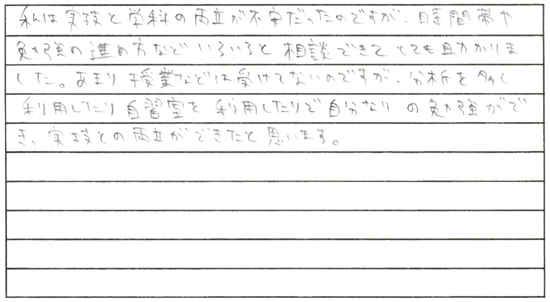 私は実技と学科の両立が不安だったのですが、時間帯や
勉強の進め方などいろいろと相談できてとても助かりま
した。あまり授業などは受けてないのですが、分析を多く
利用したり自習室を利用したりで自分なりの勉強がで
き、実技との両立ができたと思います。